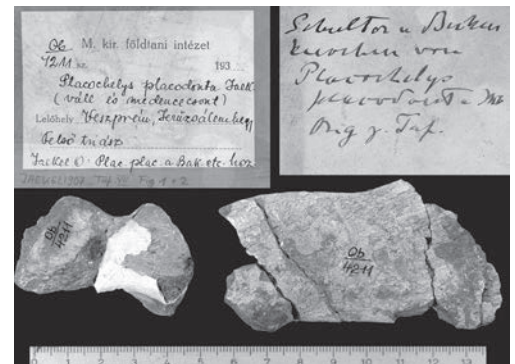 Ob M. kir. földtani intézet
4211 sz. 193
Placochelys placodonta Jaek.
(váll és medencecsont)
Lelőhely Veszprém, Jeruzsálemhegy
Felső triász
Jaekel O. Plac. plac. a Bak. etc. hoz.
JAEKEL 1907 Taf. VII Fig 1 + 2
Schulter u Becken
knochen von
Placochelys
placodonta Jkl
Orig z. Taf.
Ob
4211
Ob
4211
0 1 2 3 4 5 6 7 8 9 10 11 12 13